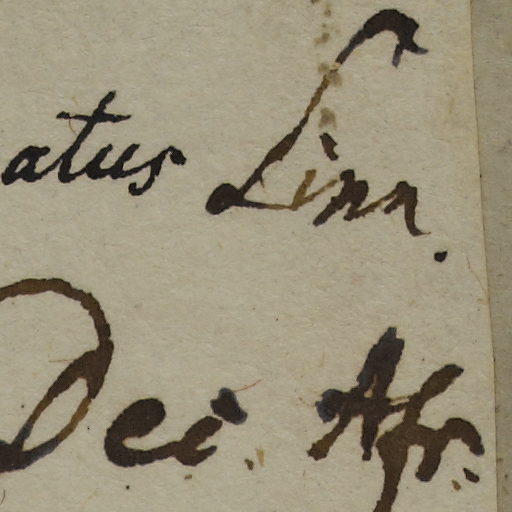 atus Linn.
Dei. Afr.